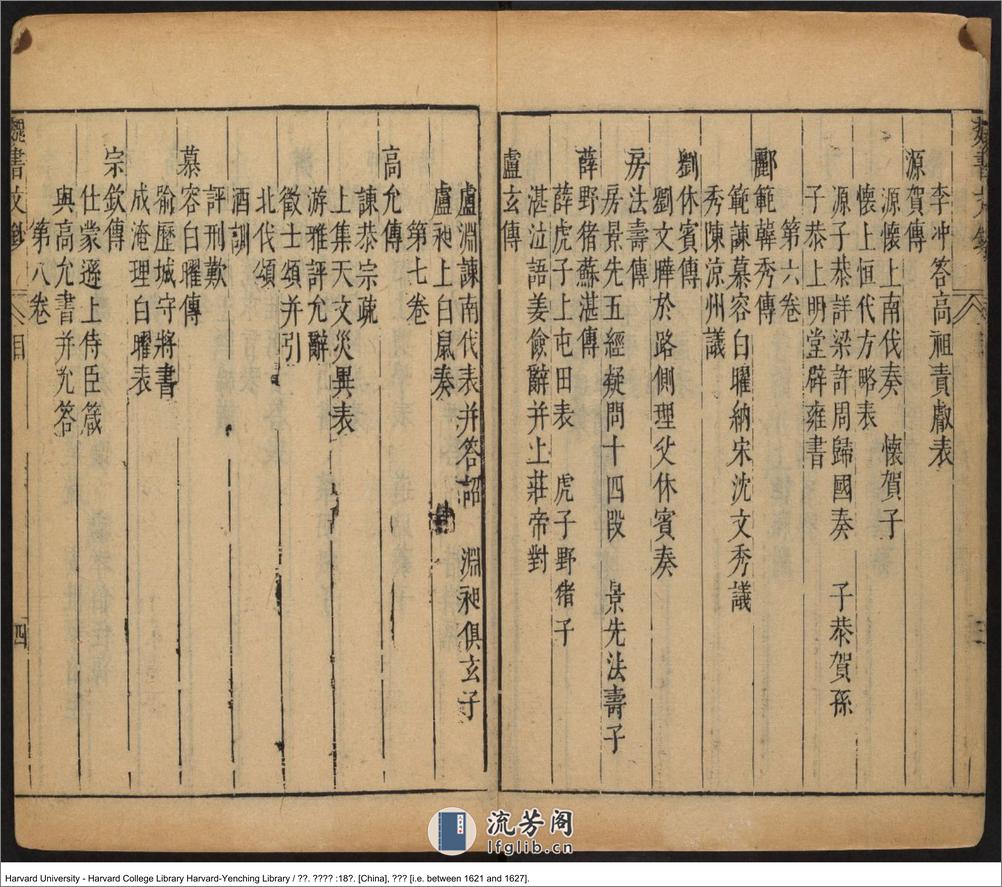 李冲答高祖責獻表
源賀傳
源懷上南伐奏　懷賀子
懷上恒代方略表
源子恭詳梁許周歸國奏　子恭賀孫
子恭上明堂辟雍書
第六卷
酈範韓秀傳
範諫慕容白曜納宋沈文秀議
秀陳涼州議
劉休賓傳
劉文曄於路側理父休賓奏
房法壽傳
房景先五經疑問十四段　景先法壽子
薛野猪蘇湛傳
薛虎子上屯田表　虎子野猪子
湛泣語姜儉辭并上莊帝對
盧玄傳
盧淵諫南伐表并答詔　淵昶俱玄子
盧昶上白鼠奏
第七卷
高允傳
諫恭宗疏
上集天文災異表
游雅評允辭
徵士頌并引
北伐頌
酒訓
評刑歎
慕容白曜傳
喻歷城守將書
成淹理白曜表
宗欽傳
仕蒙遜上侍臣箴
與高允書并允答
第八卷
目
四
流芳阁
lfglib.cn
Harvard University - Harvard College Library Harvard-Yenching Library / ??. ???? :18?. [China], ??? [i.e. between 1621 and 1627].